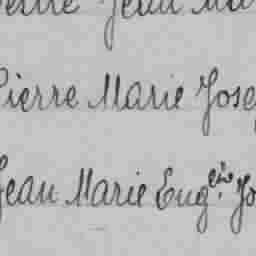 Jean Ma
Pierre Marie Jose
Jean Marie Eug.ène Jo